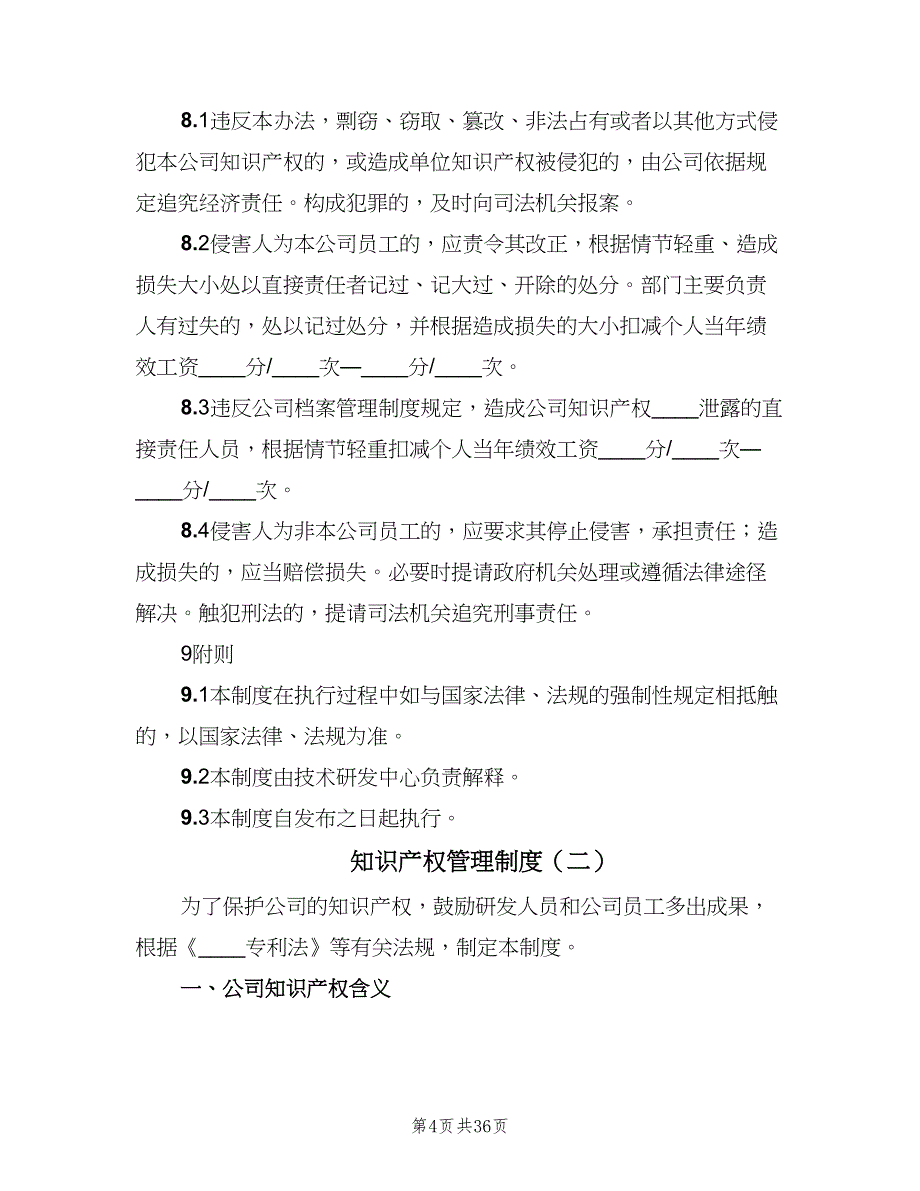 8.1违反本办法，剽窃、窃取、篡改、非法占有或者以其他方式侵
犯本公司知识产权的，或造成单位知识产权被侵犯的，由公司依据规
定追究经济责任。构成犯罪的，及时向司法机关报案。
8.2侵害人为本公司员工的，应责令其改正，根据情节轻重、造成
损失大小处以直接责任者记过、记大过、开除的处分。部门主要负责
人有过失的，处以记过处分，并根据造成损失的大小扣减个人当年绩
效工资____分/____次—____分/____次。
8.3违反公司档案管理制度规定，造成公司知识产权____泄露的直
接责任人员，根据情节轻重扣减个人当年绩效工资____分/____次—
____分/____次。
8.4侵害人为非本公司员工的，应要求其停止侵害，承担责任；造
成损失的，应当赔偿损失。必要时提请政府机关处理或遵循法律途径
解决。触犯刑法的，提请司法机关追究刑事责任。
9附则
9.1本制度在执行过程中如与国家法律、法规的强制性规定相抵触
的，以国家法律、法规为准。
9.2本制度由技术研发中心负责解释。
9.3本制度自发布之日起执行。
知识产权管理制度（二）
为了保护公司的知识产权，鼓励研发人员和公司员工多出成果，
根据《____专利法》等有关法规，制定本制度。
一、公司知识产权含义
第4页共36页